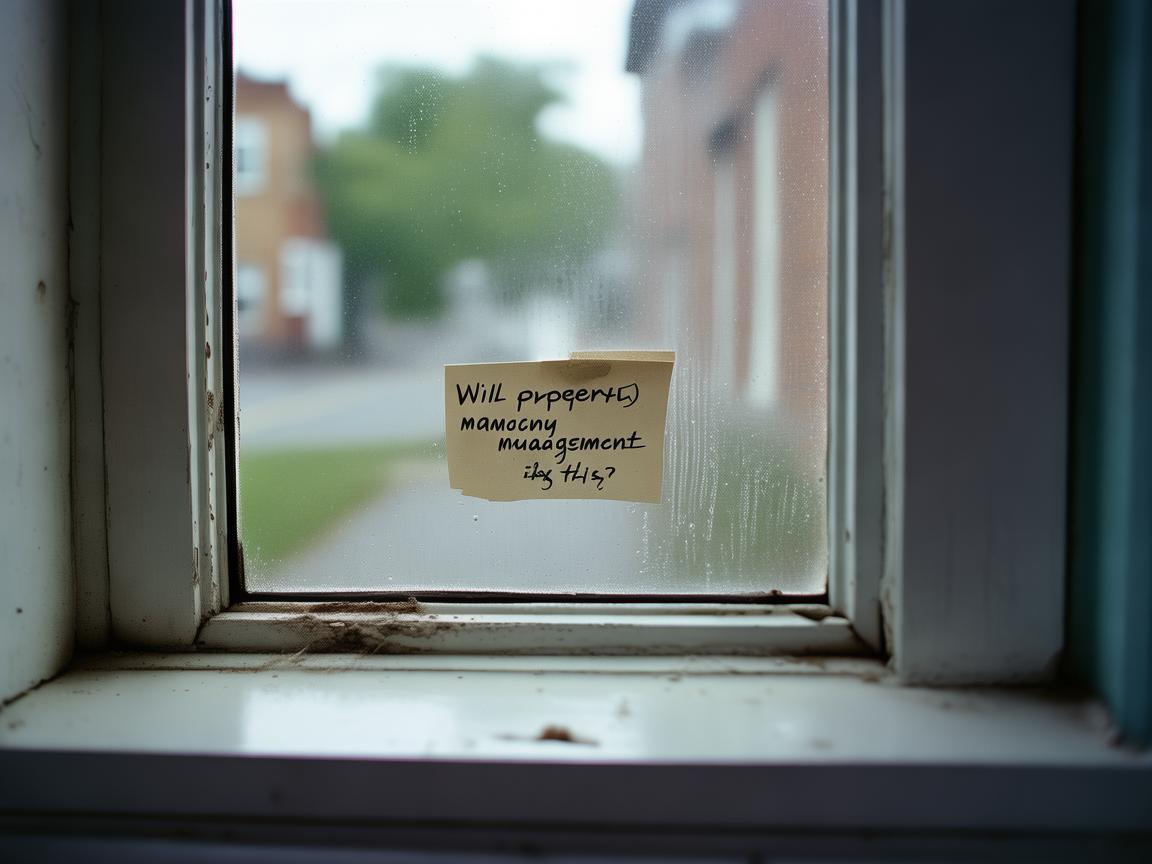 Will prpqert
mamocny
muaagsment
this?